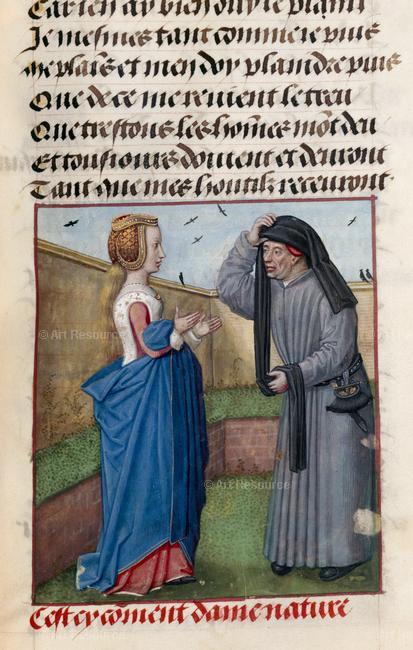 ay bien ouy le plaint
Je mesmes tant comme ie puis
Me plais et men doy plaindre puis
Que de ce me reuient le treu
Que trestous les hõmes mõt deu
Et tousiours doiuent et deuront
Tant que mes houtilz receuront
© Art Resource
© Art Resource
Cest cy cõment dame nature